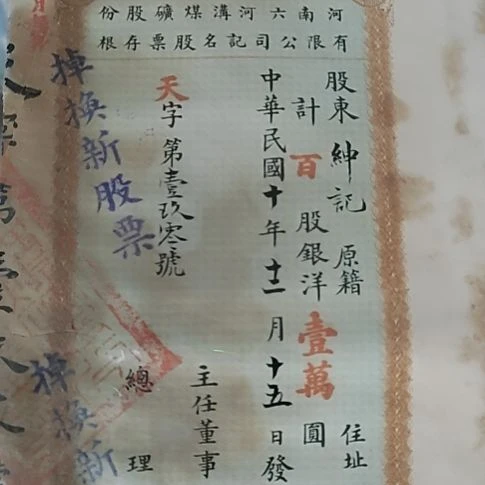 河南六河溝煤礦股份
有限公司記名股票存根
股東紳記 原籍 住址
計百股銀洋壹萬圓
中華民國十年十二月十五日發
主任董事
天字第壹玖零號
總理
掉換新股票
掉換新